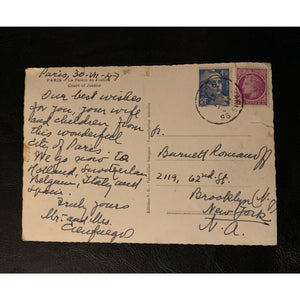 Paris, 30-VII-47
PARIS — Le Palais de Justice
Court of Justice
Our best wishes
for you, your wife
and children from
this wonderful
city of Paris.
We go now to
Holland, Switzerland
Belgium, Italy and
Spain.
Truly yours
Mr. and Mrs.
Cienfuegos
Sr.
Barnett Romanoff
2119, 62nd St.
Brooklyn (N.Y)
New York
N. A.